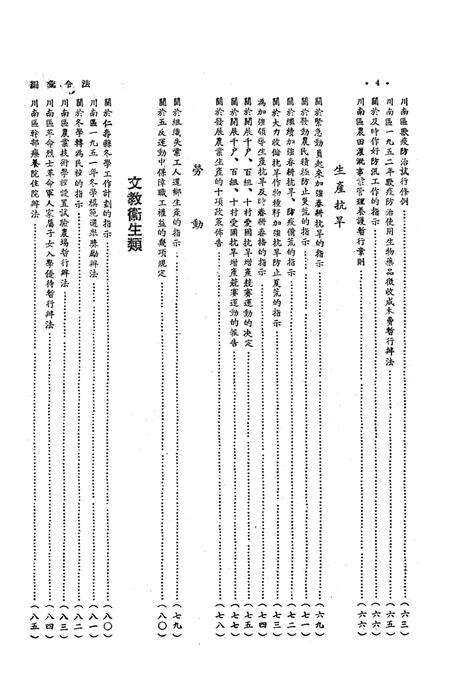 ·4·
法令彙編
川南區獸疫防治試行條例……(六三)
川南區一九五二年獸疫防治使用生物藥品徵收成本費暫行辦法……(六五)
關於及時作好防汛工作的指示……(六六)
川南區農田灌溉事管理養護暫行章則……(六六)
生產抗旱
關於緊急動員起來加強春耕抗旱的指示……(六九)
關於發動農民積極防止災荒的指示……(七一)
關於繼續加強春耕抗旱、防疫備荒的指示……(七二)
關於大力收儲抗旱作物種籽加強抗旱防止夏荒的指示……(七三)
為加強領導生產抗旱及時春耕春播的指示……(七四)
關於開展千戶、百組、十村愛國抗旱增產競賽運動的決定……(七五)
關於開展千戶、百組、十村愛國抗旱增產競賽運動的報告……(七七)
關於發展農業生產的十項政策佈告……(七八)
勞動
關於組織失業工人還鄉生產的指示……(七九)
關於五反運動中保障職工權益的幾項規定……(八〇)
文教衞生類
關於仁壽縣冬學工作計劃的指示……(八〇)
川南區一九五一年冬學模範選舉獎勵辦法……(八一)
關於冬學轉為民校的指示……(八二)
川南區農業技術學校設置試驗農場暫行辦法……(八三)
川南區革命烈士革命軍人家屬子女入學優待暫行辦法……(八四)
川南區幹部療養院住院辦法……(八五)